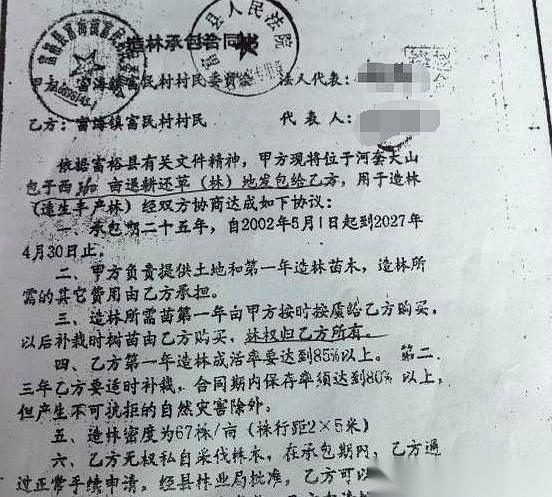 造林承包合同
富裕县富海镇富民村
县人民法院
甲方：富海镇富民村村民委员会 法人代表：
乙方：富海镇富民村村民 代 表 人：
依据富裕县有关文件精神，甲方现将位于河套大山
包子西 亩退耕还草（林）地发包给乙方，用于造林
（速生丰产林）经双方协商达成如下协议：
一、承包期二十五年，自2002年5月1日起到2027
年4月30日止。
二、甲方负责提供土地和第一年造林苗木，造林所
需的其它费用由乙方承担。
三、造林所需苗第一年由甲方按时按质给乙方购买，
以后补栽时树苗由乙方购买，林权归乙方所有。
四、乙方第一年造林成活率要达到85%以上。第二、
三年乙方要适时补栽，合同期内保存率须达到80%以上，
但产生不可抗拒的自然灾害除外。
五、造林密度为67株/亩（株行距2×5米）
六、乙方无权私自采伐林木，在承包期内，乙方通
过正常手续申请，经县林业局批准，乙方可以